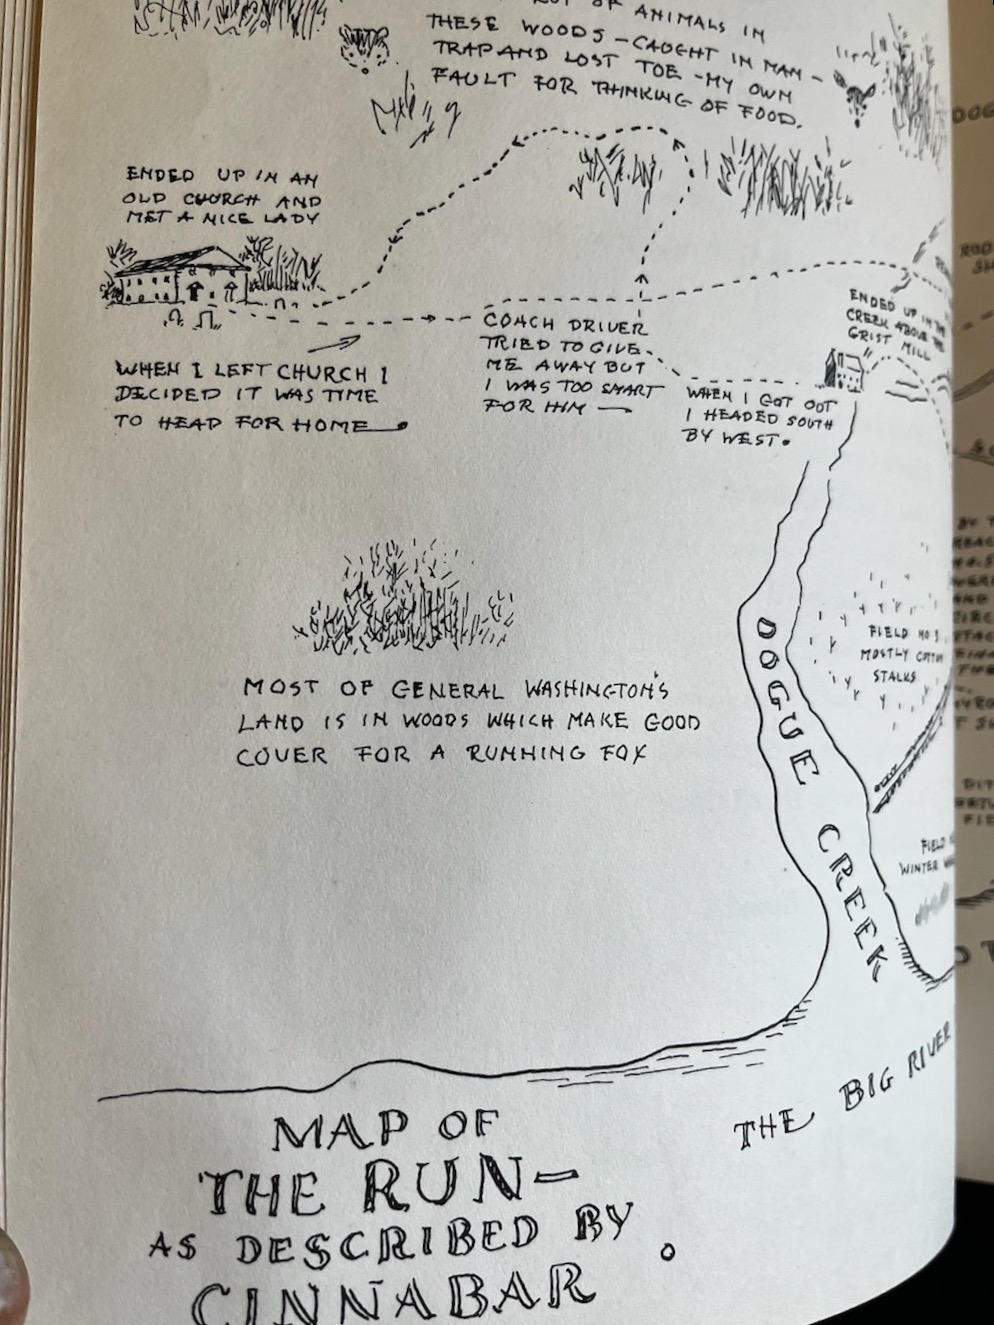 OF ANIMALS IN
THESE WOODS – CAUGHT IN MAN –
TRAP AND LOST TOE – MY OWN
FAULT FOR THINKING OF FOOD.
ENDED UP IN AN
OLD CHURCH AND
MET A NICE LADY
WHEN I LEFT CHURCH I
DECIDED IT WAS TIME
TO HEAD FOR HOME.
COACH DRIVER
TRIED TO GIVE
ME AWAY BUT
I WAS TOO SMART
FOR HIM —
ENDED UP IN THE
CREEK ABOVE THE
GRIST MILL
WHEN I GOT OUT
I HEADED SOUTH
BY WEST.
MOST OF GENERAL WASHINGTON'S
LAND IS IN WOODS WHICH MAKE GOOD
COVER FOR A RUNNING FOX
DOGUE CREEK
FIELD NO 3
MOSTLY COTTON
STALKS
FIELD
WINTER
THE BIG RIVER
MAP OF
THE RUN–
AS DESCRIBED BY
CINNABAR
DOG